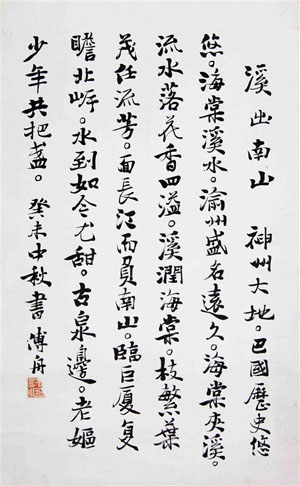 溪出南山 神州大地。巴國歷史悠
悠。海棠溪水。渝州盛名遠久。海棠夾溪。
流水落花香四溢。溪潤海棠。枝繁葉
茂任流芳。面長江而負南山。臨巨廈复
瞻北。水到如今尤甜。古泉邊。老嫗
少年共把盏。癸未中秋書 傅舟